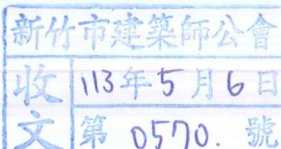 新竹市建築師公會
收文
113年5月6日
第 0570. 號